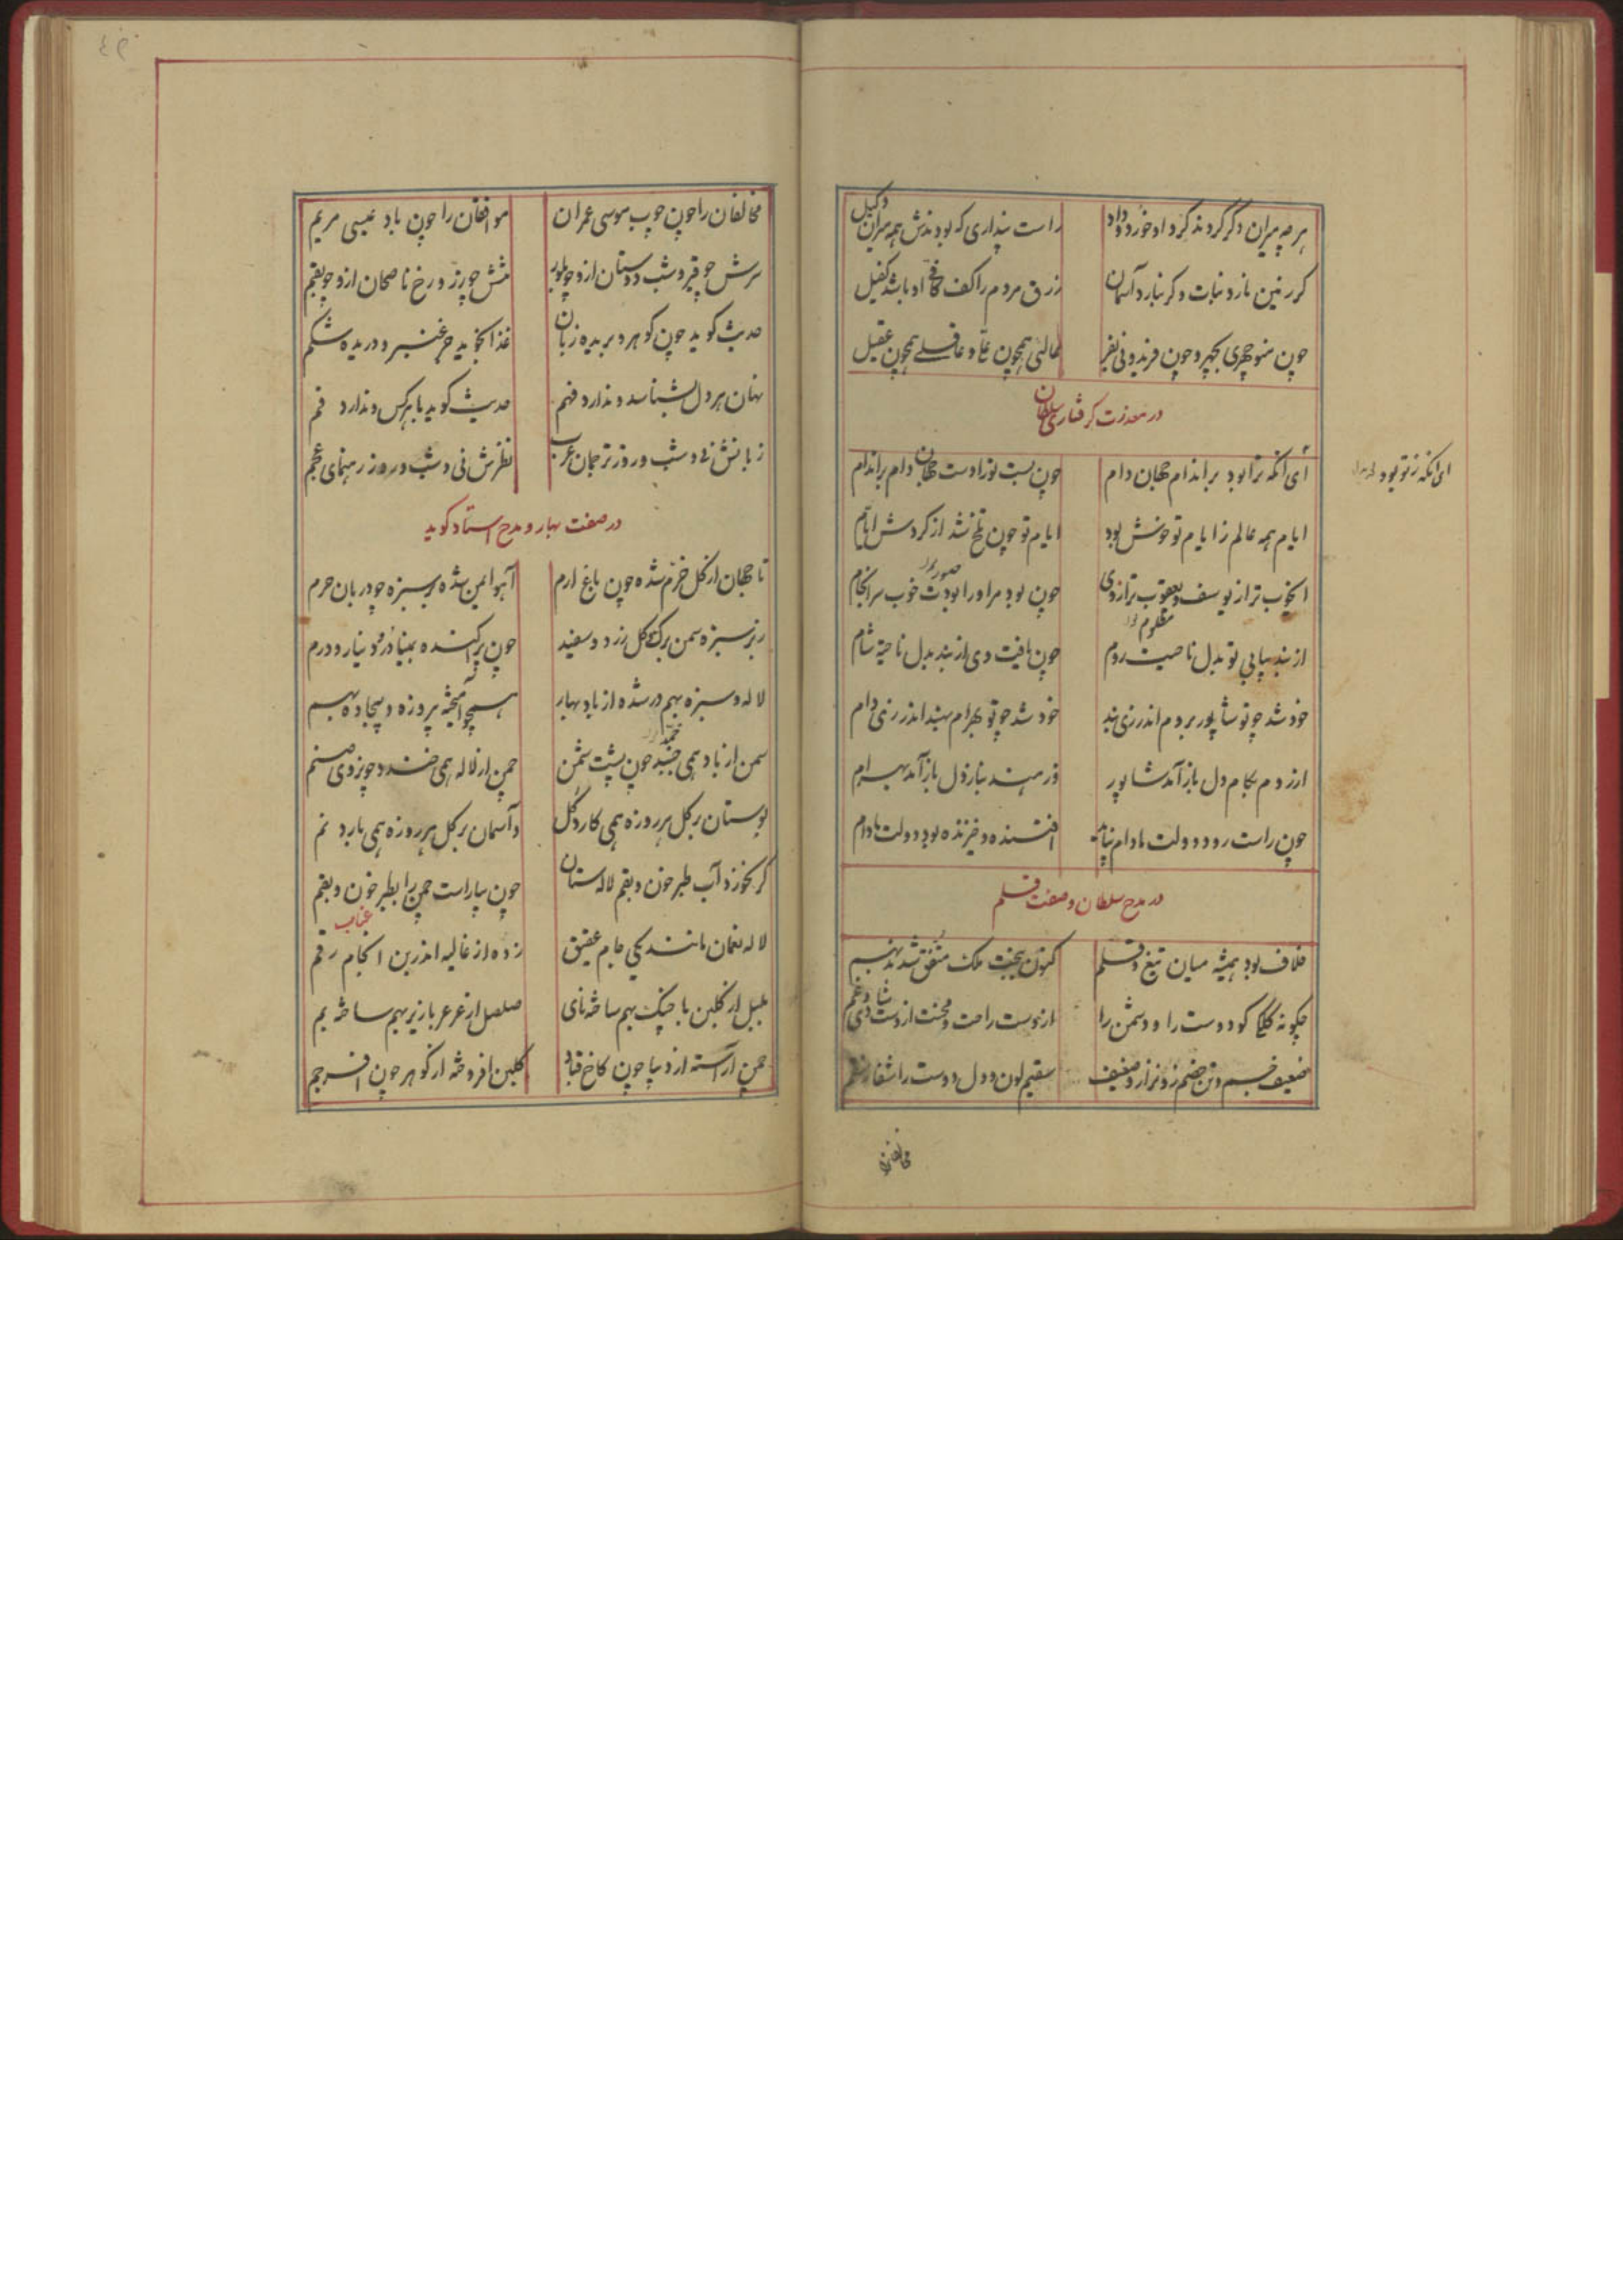 هر چه پیران دگر گردند گرد او خورد و داد راست پنداری که بودندش همه میران وکیل
گر زمین نارد نبات و گر نبارد آسمان رزق مردم را کف کافی او باشد کفیل
چون منوچهری بچهر و چون فریدونی بفر عالمی همچون علی و عاقلی همچون عقیل
در معذرت گرفتاری سلطان
ای آنکه ترا بود بر اندام جهان دام چون بست تو را دست جهان دام بر اندام
ای آنکه ز تو بود
ایام همه عالم ز ایام تو خوش بود ایام تو چون تلخ شد از گردش ایام
ای خوب تر از یوسف و یعقوب تر از وی چون بود مر او را بودت خوب سرانجام
صبور
مظلوم
از بند بیابی تو بدل ناحیت روم چون یافت وی از بند بدل ناحیة شام
خود شد چو تو شاپور بروم اندر زی بند خود شد چو تو بهرام بهند اندر زی دام
از روم بکام دل باز آمد شاپور وز هند بناز دل باز آمد بهرام
چون راست رود دولت مادام نپاید افتنده و خیزنده بود دولت مادام
در مدح سلطان و صفت قلم
خلاف بود همیشه میان تیغ و قلم کنون ببخت ملک متفق شدند بهم
چگونه کلکی کو دوست را و دشمن را از اوست راحت و محنت از اوست شادی و غم
ضعیف جسم و تن خصم زو نزار و ضعیف سقیم لون و دل دوست را شفا ز سقم
مخالفان
مخالفان را چون چوب موسی عمران موافقان را چون باد عیسی مریم
سرش چو قیر و شب دوستان ازو چو بلور تنش چو زر و رخ ناصحان ازو چو بقم
حدیث گوید چون گوهر و بریده زبان غذا نخوید جز عنبر و دریده شکم
نهان هر دل بشناسد و ندارد فهم حدیث گوید با هر کس و ندارد فم
زبانش نی و شب و روز ترجمان عرب نظرش نی و شب و روز رهنمای عجم
در صفت بهار و مدح استاد گوید
تا جهان از گل خرم شده چون باغ ارم آهو ایمن شده بر سبزه چو دربان حرم
زبر سبزه سمن برگ گل زرد و سفید چون پراکنده بمینا در دینار و درم
لاله و سبزه بهم در شده از باد بهار همچو آمیخته پیروزه و بیجاده بهم
سمن از باد همی خسبد چون پشت شمن چمن از لاله همی خندد چو روی صنم
خمد
بوستان بر گل هر روزه همی کارد گل و آسمان بر گل هر روزه همی بارد نم
گر نخورد آب طبرخون و بقم لاله ستان چون بیاراست چمن را بطبرخون و بقم
عناب
لاله نعمان مانند یکی جام عقیق زده از غالیه اندر بن آن جام رقم
بلبل از گلبن با چنگ بهم ساخته نای صلصل از عرعر با زیر بهم ساخته بم
چمن آراسته از دیبا چون کاخ قباد گلبن افروخته از گوهر چون افسر جم